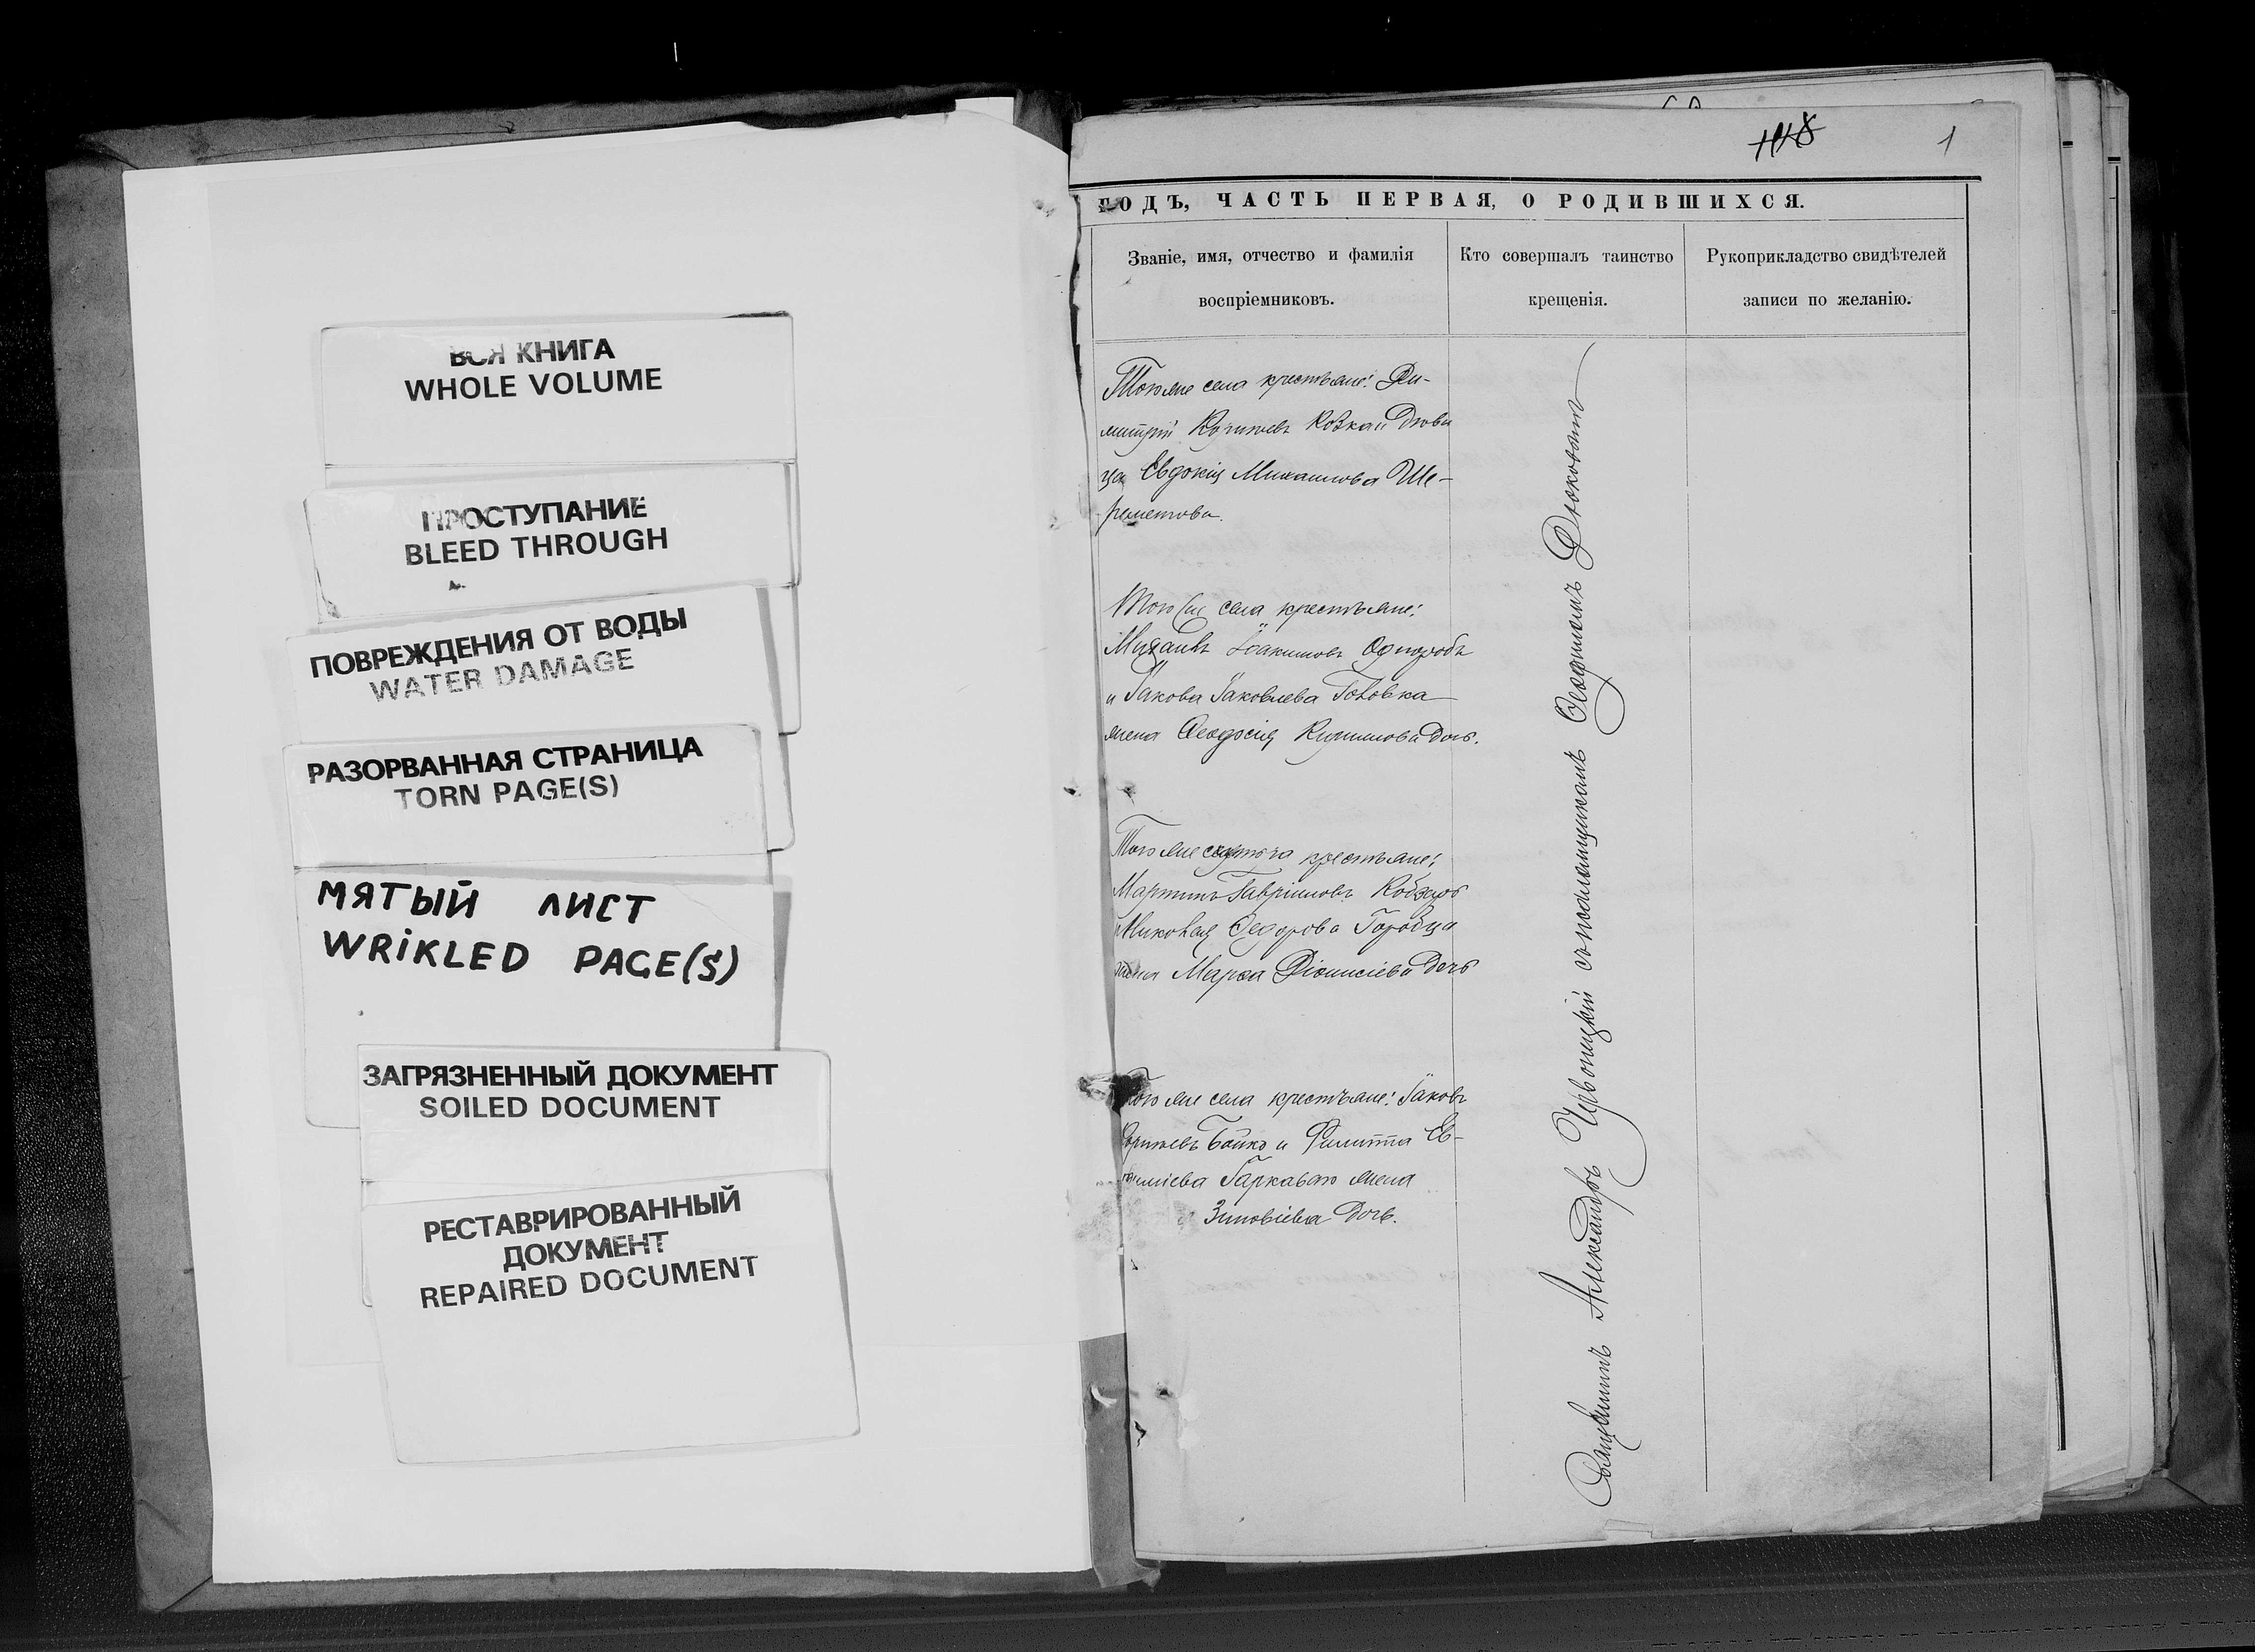 ВСЯ КНИГА
WHOLE VOLUME
ПРОСТУПАНИЕ
BLEED THROUGH
ПОВРЕЖДЕНИЯ ОТ ВОДЫ
WATER DAMAGE
РАЗОРВАННАЯ СТРАНИЦА
TORN PAGE(S)
МЯТЫЙ ЛИСТ
WRIKLED PAGE(S)
ЗАГРЯЗНЕННЫЙ ДОКУМЕНТ
SOILED DOCUMENT
РЕСТАВРИРОВАННЫЙ
ДОКУМЕНТ
REPAIRED DOCUMENT
1
ГОДЪ, ЧАСТЬ ПЕРВАЯ, О РОДИВШИХСЯ.
Званіе, имя, отчество и фамилія
воспріемниковъ.
Кто совершалъ таинство
крещенія.
Рукоприкладство свидѣтелей
записи по желанію.
Того же села крестьяне: Ди-
митрій Козка и Дѣви
ца Евдокія Михаилова Ше-
реметова.
Того же села крестьяне:
Михаилъ Іоакимовъ Однорогъ
и Іакова Іаковлева Головка
жена Ѳеодосія Кириллова дочь.
Того же крестьяне:
Мартинъ Гавріиловъ Кобзарь
и Ѳедорова Горобца
жена Марѳа Діонисіева дочь
Того же села крестьяне: Іаковъ
Бойко и Филиппа Ев-
Гаркаваго жена
Зиновіева дочь.
Священникъ Александръ Червонецкій съ псаломщикомъ